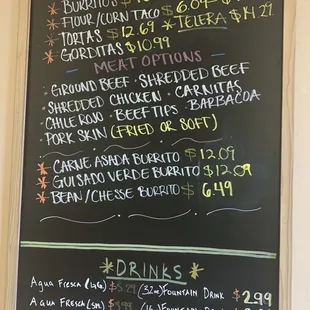 BURRITOS $
FLOUR/CORN TACO $ 6.04
*TELERA $14.29
TORTAS $12.69
GORDITAS $10.99
- MEAT OPTIONS -
GROUND BEEF · SHREDDED BEEF
SHREDDED CHICKEN · CARNITAS
CHILE ROJO · BEEF TIPS · BARBACOA
PORK SKIN (FRIED OR SOFT)
* CARNE ASADA BURRITO $ 12.09
* GUISADO VERDE BURRITO $12.09
* BEAN/CHESSE BURRITO $ 6.49
*DRINKS*
AGUA FRESCA (LG) $5.29 (32oz) FOUNTAIN DRINK $2.99
AGUA FRESCA (SM) FOUNTAIN DRINK